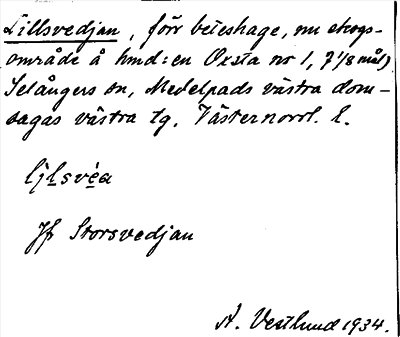 Lillsvedjan, förr beteshage, nu skogs-
område å hmd:en Oxsta nr 1, 7 1/8 mål)
Selångers sn, Medelpads västra dom-
sagas västra tg. Västernorrl. l.
ljlsvéa
Jf Storsvedjan
A. Vestlund 1934.